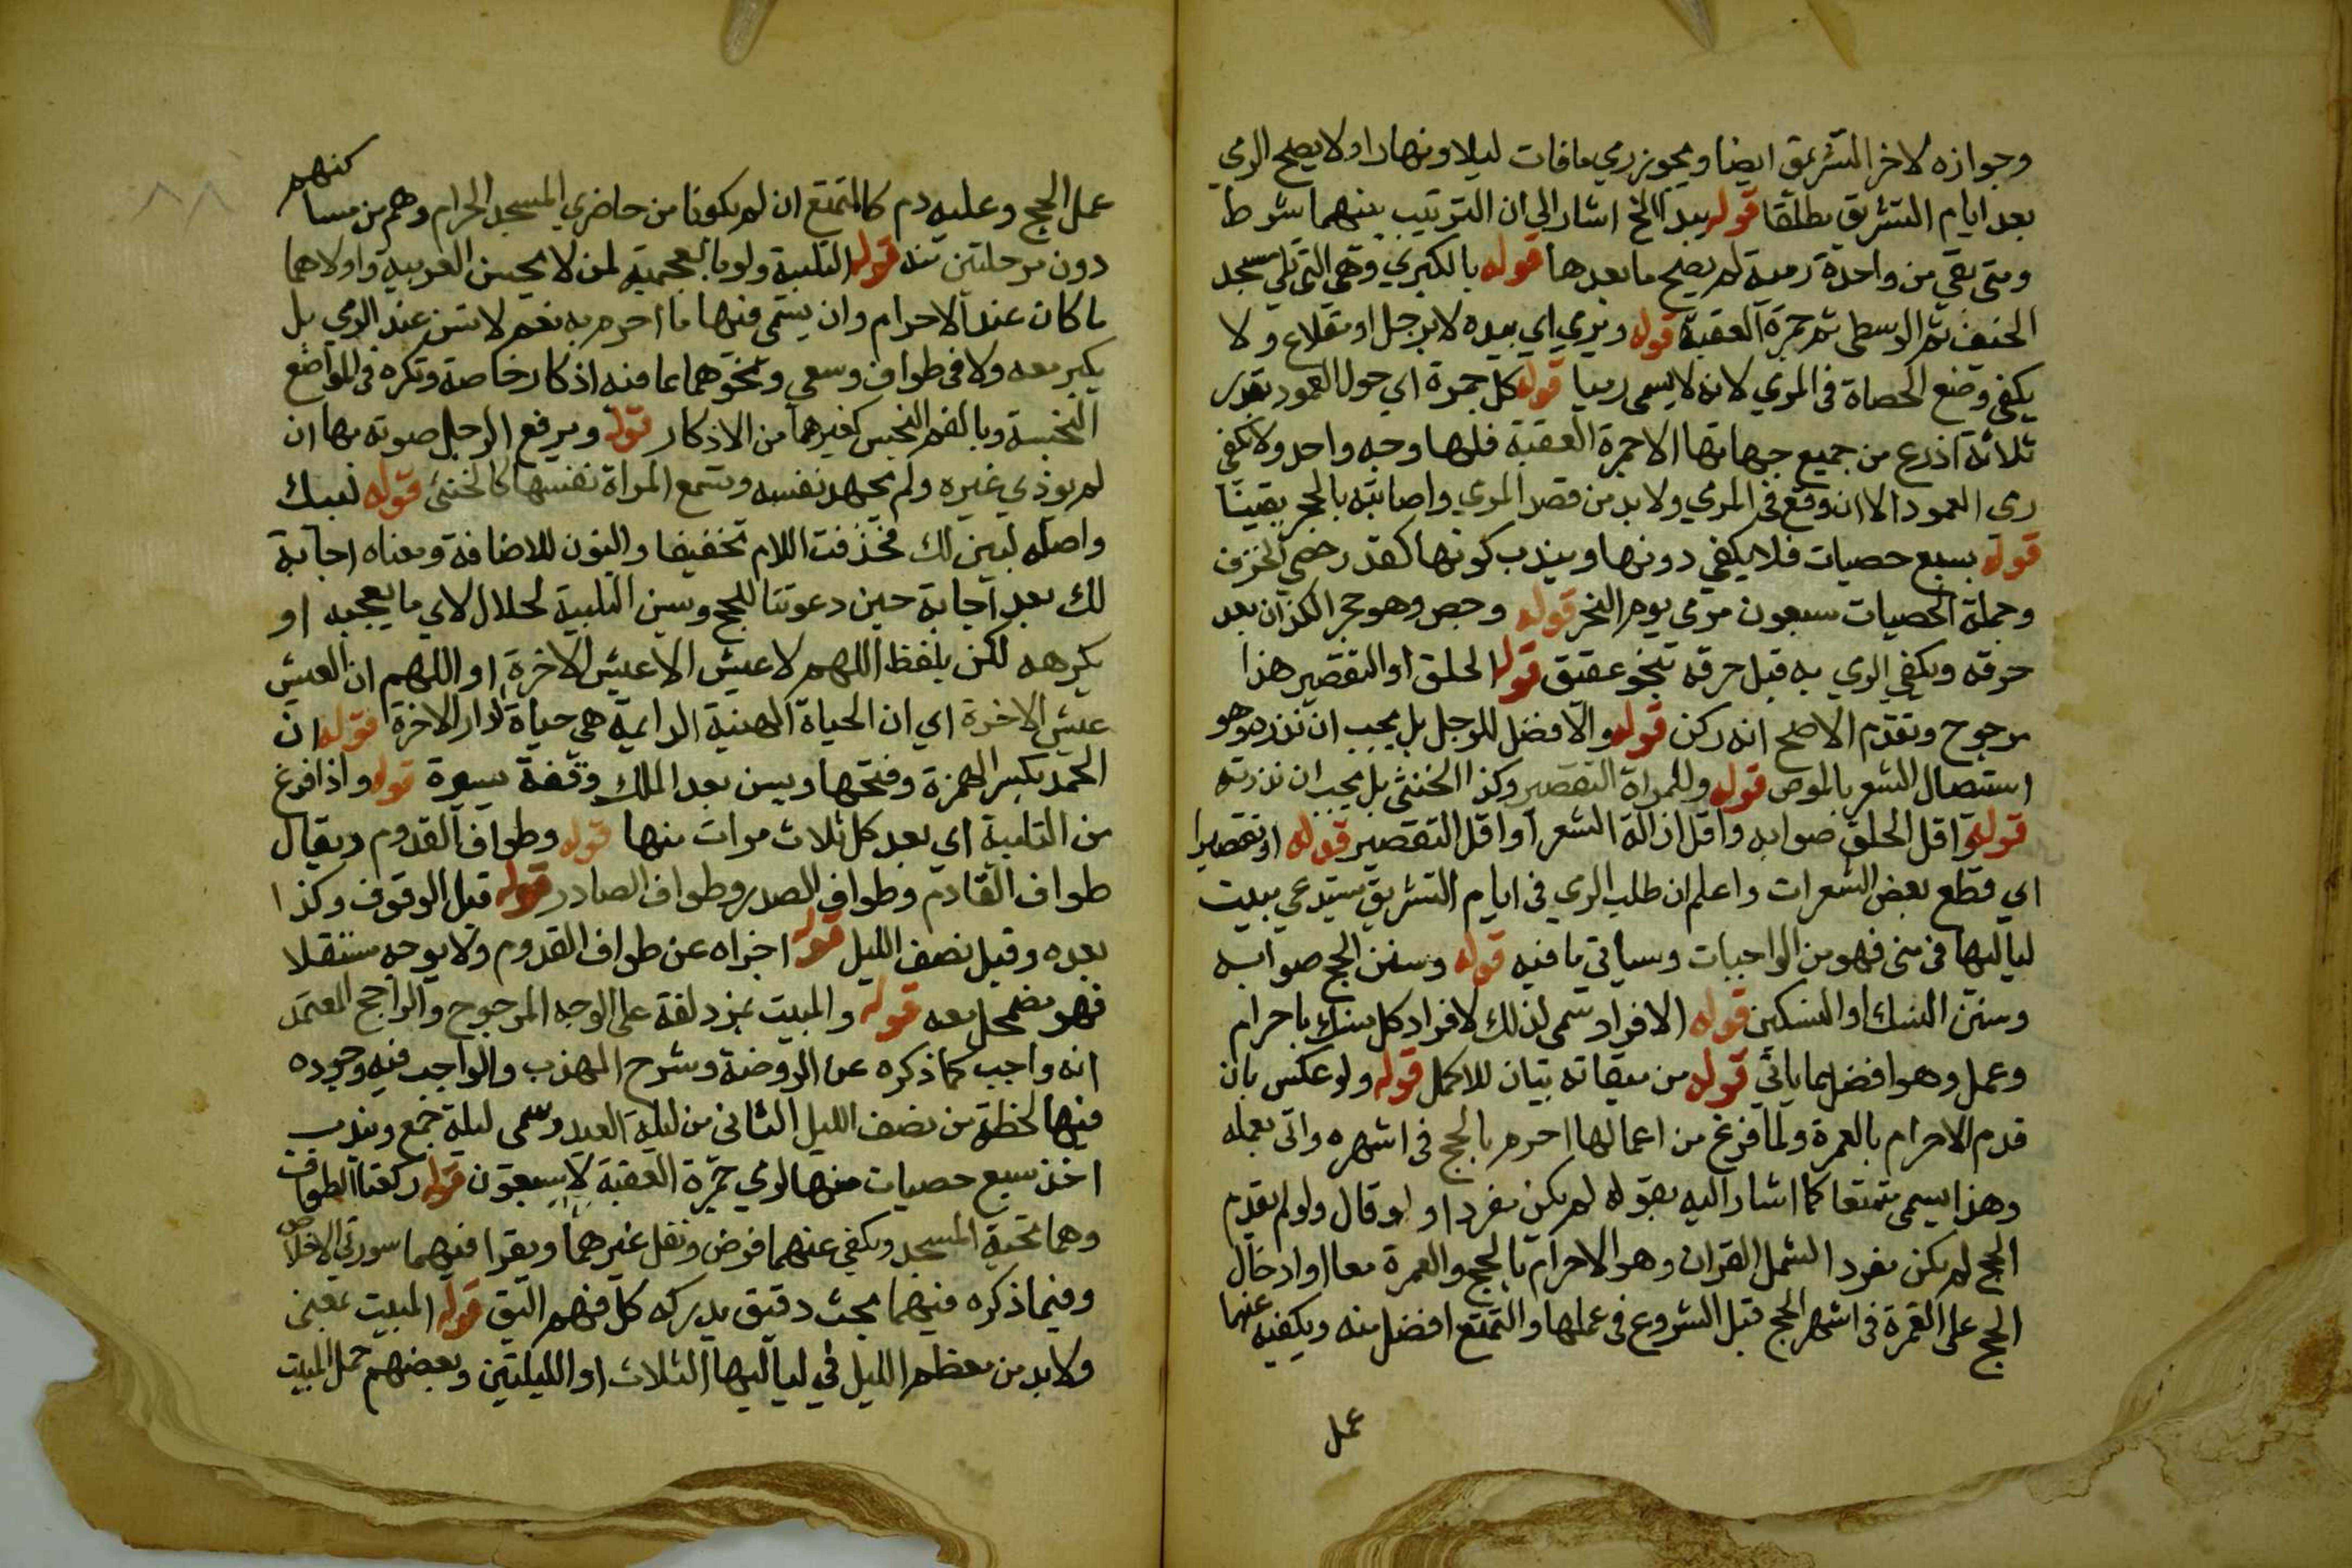 وجوازه لاخر التشريق ايضا ويجوز رمي مافات ليلا ونهارا ولا يصح الرمي
بعد ايام التشريق مطلقا قوله يبدا الخ اشار الي ان الترتيب بينهما شرط
ومتى بقي من واحدة رمية لم يصح ما بعدها قوله بالكبري وهي التي تلي مسجد
الخيف ثم الوسطى ثم جمرة العقبة قوله ويرمي اي بيده لا برجل او مقلاع ولا
يكفي وضع الحصاة في المرمي لانه لا يسمى رميا قوله كل جمرة اي حول العمود بقدر
ثلاثة اذرع من جميع جهاتها الا جمرة العقبة فلها وجه واحد ولا يكفي
رمى العمود الا ان وقع في المرمي ولا بد من قصد المرمي واصابته بالحجر يقينا
قوله بسبع حصيات فلا يكفي دونها ويندب كونها كقدر حصي الخزف
وجملة الحصيات سبعون مرمى يوم النحر قوله وجص وهو حجر الكذان بعد
حرقه ويكفي الرمي به قبل حرقه بنحو عقيق قوله الحلق او التقصير هذا
مرجوح وتقدم الاصح انه ركن قوله والافضل للرجل بل يجب ان نذره وهو
استصال الشعر بالموسى قوله وللمراة التقصير وكذا الخنثى بل يجب ان نذرته
قوله واقل الحلق صوابه واقل ازالة الشعر او اقل التقصير قوله او تقصيرا
اي قطع بعض الشعرات واعلم ان طلب الرمي في ايام التشريق يستدعي مبيت
لياليها في منى فهو من الواجبات وسياتي ما فيه قوله وسنن الحج صوابه
وسنن النسك او النسكين قوله الافراد سمي لذلك لافراد كل نسك باحرام
وعمل وهو افضل مما ياتي قوله من ميقاته بيان للاكمل قوله ولو عكس بان
قدم الاحرام بالعمرة ولما فرغ من اعمالها احرم بالحج في اشهره واتى بعمله
وهذا يسمى متمتعا كما اشار اليه بقوله لم يكن مفردا ولو قال ولو لم يقدم
الحج لم يكن مفردا لشمل القران وهو الاحرام بالحج والعمرة معا او ادخال
الحج على العمرة في اشهر الحج قبل الشروع في عملها والتمتع افضل منه ويكفيه عنهما
عمل
عمل الحج وعليه دم كالمتمتع ان لم يكونا من حاضري المسجد الحرام وهم من مساكنهم
دون مرحلتين منه قوله التلبية ولو بالعجمية لمن لا يحسن العربية واولاهما
ما كان عند الاحرام وان يسمى فيها ما احرم به نعم لا تسن عند الرمي بل
يكبر معه ولا في طواف وسعي ونحوهما مما فيه اذكار خاصة وتكره في المواضع
النجسة وبالفم النجس كغيرهما من الاذكار قوله ويرفع الرجل صوته بها ان
لم يوذي غيره ولم يجهد نفسه وتسمع المراة نفسها كالخنثى قوله لبيك
واصله لبين لك فحذفت اللام تخفيفا والنون للاضافة ومعناه اجابة
لك بعد اجابة حين دعوتنا للحج وتسن التلبية لحلال لاي ما يعجبه او
يكرهه لكن بلفظ اللهم لا عيش الا عيش الاخرة او اللهم ان العيش
عيش الاخرة اي ان الحياة الهنية الدايمة هي حياة الدار الاخرة قوله ان
الحمد بكسر الهمزة وفتحها ويسن بعد الملك وقفة يسيرة قوله واذا فرغ
من التلبية اي بعد كل ثلاث مرات منها قوله وطواف القدوم ويقال
طواف القادم وطواف الصدر وطواف الصادر قوله قبل الوقوف وكذا
بعده وقبل نصف الليل قوله اجزاه عن طواف القدوم ولا يوجد مستقلا
فهو مضمحل معه قوله والمبيت بمزدلفة على الوجه المرجوح والراجح المعتمد
انه واجب كما ذكره عن الروضة وشرح المهذب والواجب فيه وجوده
فيها لحظة من نصف الليل الثاني من ليلة العيد وتسمى ليلة جمع ويندب
اخذ سبع حصيات منها لرمي جمرة العقبة لا سبعون قوله ركعتا الطواف
وهما تحية المسجد ويكفي عنهما فرض ونفل غيرهما ويقرا فيهما سورتي الاخلاص
وفيما ذكره فيهما بحث دقيق يدركه كل فهم اليق قوله المبيت بمنى
ولا بد من معظم الليل في لياليها الثلاث او الليلتين وبعضهم حمل المبيت